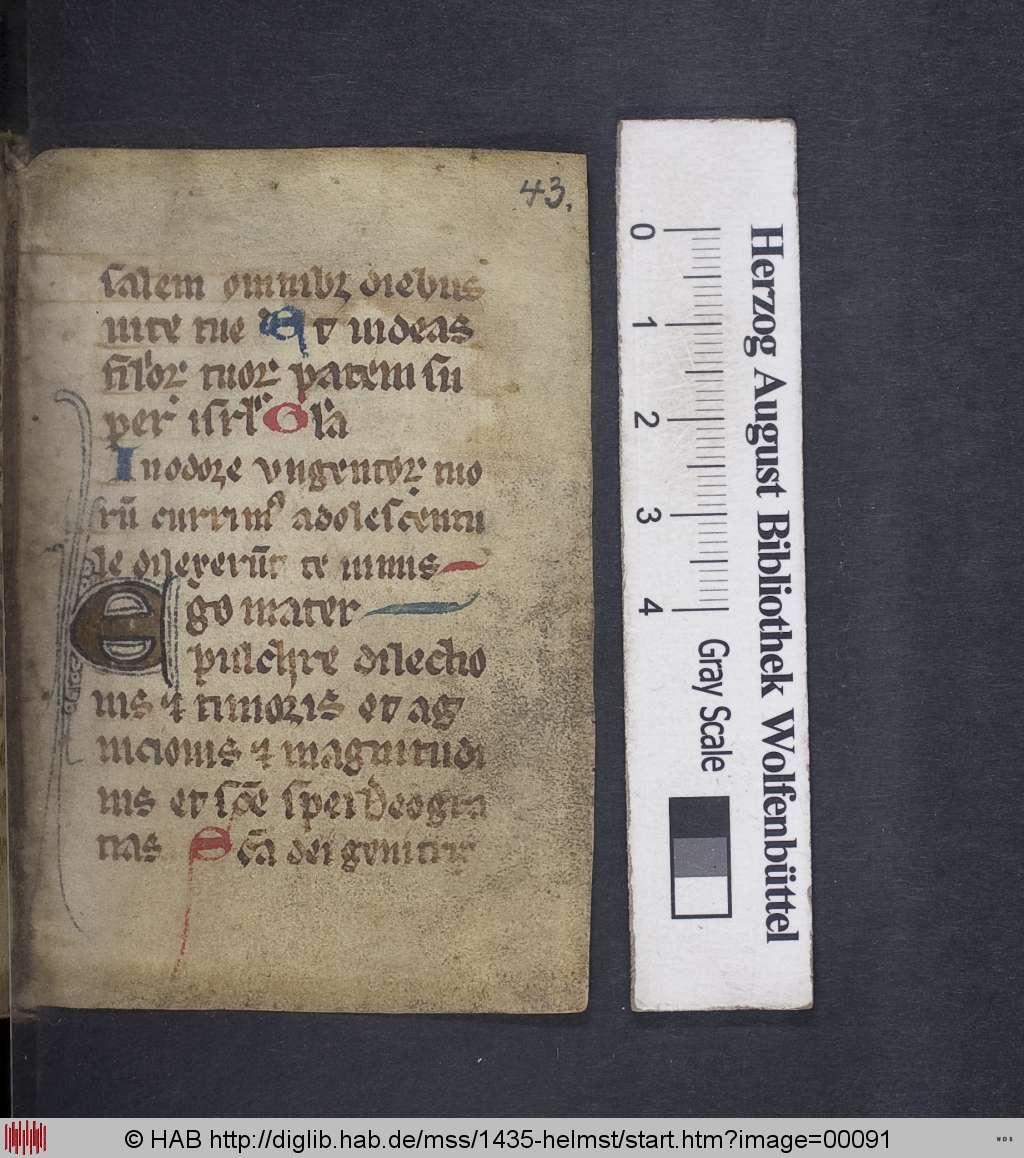 43.
salem omnibꝫ diebus
uite tue Et uideas
filioꝝ tuoꝝ pacem su
per isrl' Gl'a
In odore ungentoꝝ tuo
rū currimꝰ adolescentu
le dilexerūt te nimis
Ego mater
pulchre dilectio
nis ⁊ timoris et ag
nicionis ⁊ magnitudi
nis et sc̄e spei Deo gra
tias Sc̄a dei genitrix
Herzog August Bibliothek Wolfenbüttel
0 1 2 3 4
Gray Scale
© HAB http://diglib.hab.de/mss/1435-helmst/start.htm?image=00091